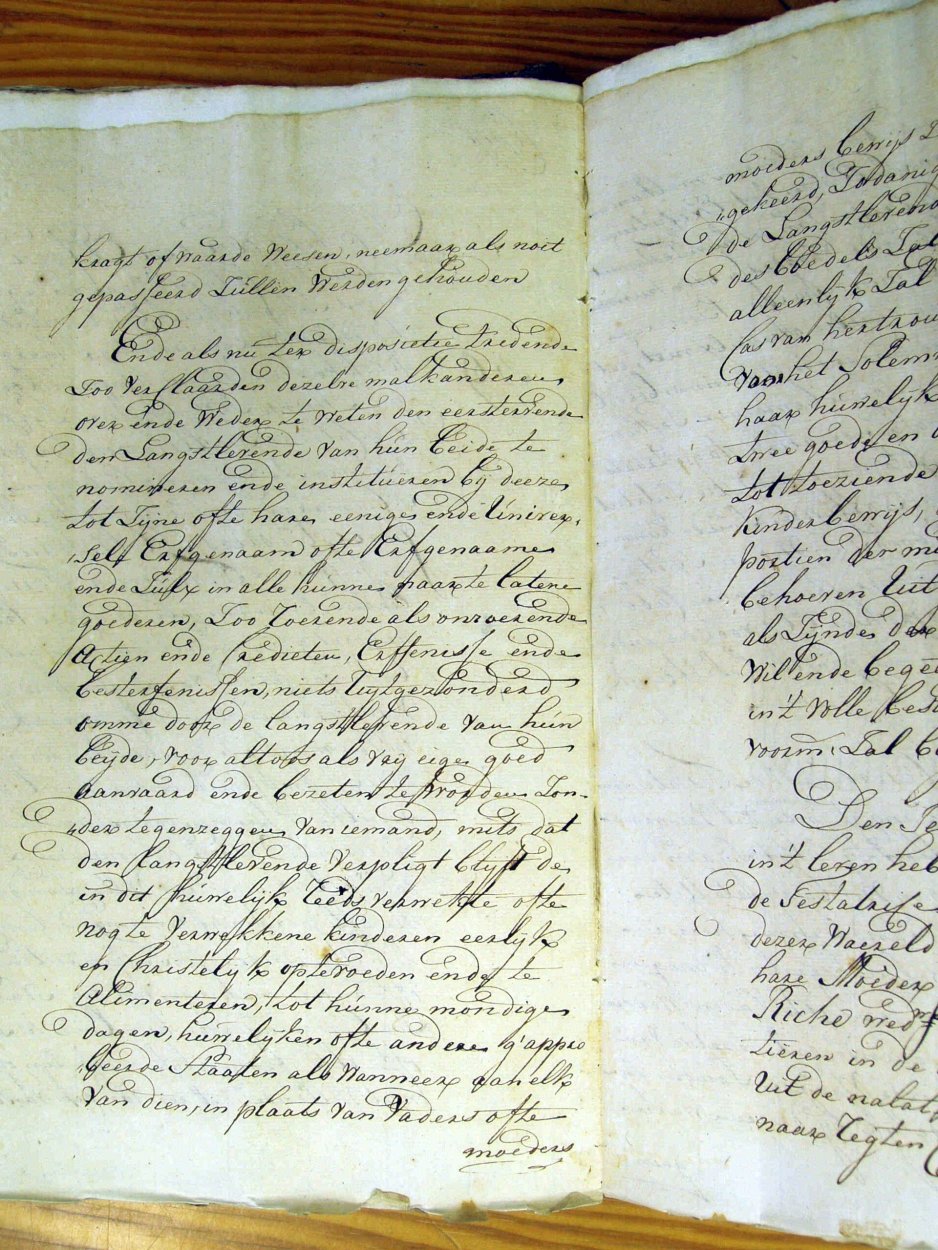 kragt of waarde Weesen, neemaar als noit
gepasseerd Zullen Werden gehouden
Ende als nu ter disposietie tredende
Zoo verclaarden dezelve malkanderen
over ende Weder te weten den eerstervende
den Langstlevende van hun beide te
nomineren ende institueren bij deeze
tot Zijne ofte hare eenige ende Univer,
,sele Erfgenaam ofte Erfgenaame
ende Zulx in alle hunne naar te latene
goederen, Zoo Roerende als onroerende
Actien ende Credieten, Erffenisse ende
besterfenissen, niets Uytgezonderd
omme door de langstlevende van hun
beijde, voor altoos als vrij eige goed
aanvaard ende bezeten te worden Zon-
„der tegenzeggen van iemand, mits dat
den langstlevende verpligt blijft de
in dit huwelijk Reeds verwekte ofte
nog te verwekkene kinderen eerlijk
en Christelijk op te voeden ende te
Alimenteren, tot hunne mondige
dagen, huwelijken ofte andere g'appro
beerde Staaten als wanneer aan elk
van dien, in plaats van Vaders ofte
moeders
moeders bewijs
„gekeerd, Zodanig
de Langstlevende
des boedels Zal
alleenlijk Zal
Cas van hertrou
van het Solem
haar huwelijk
twee goede en
tot toeziende
Kinder bewijs,
portien der
behoeren Uit
als Zijnde
Wil ende begee
in't volle
voorm: Zal
Den Te
in't leven heb
de Testatrice
dezer Waereld
hare Moeder
Riche wed.^e
tieren in de
Uit de nalat
naar Regten